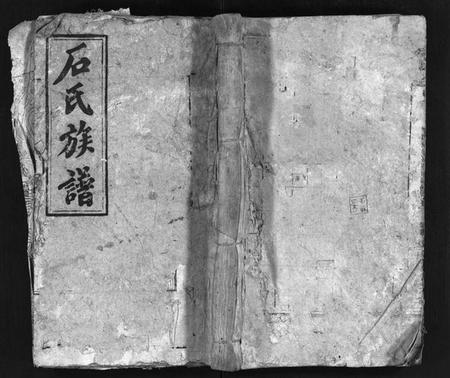 石氏族譜